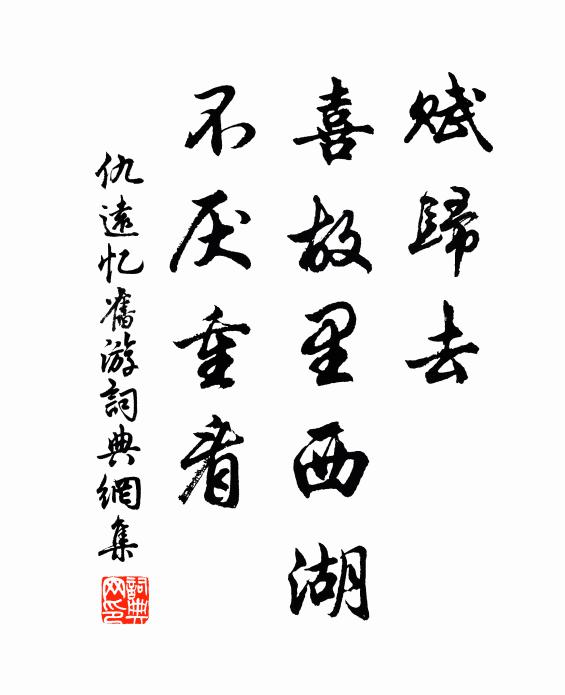 賦歸去
喜故里西湖
不厌重看
仇遠忆舊游詞典網集
詞典网印